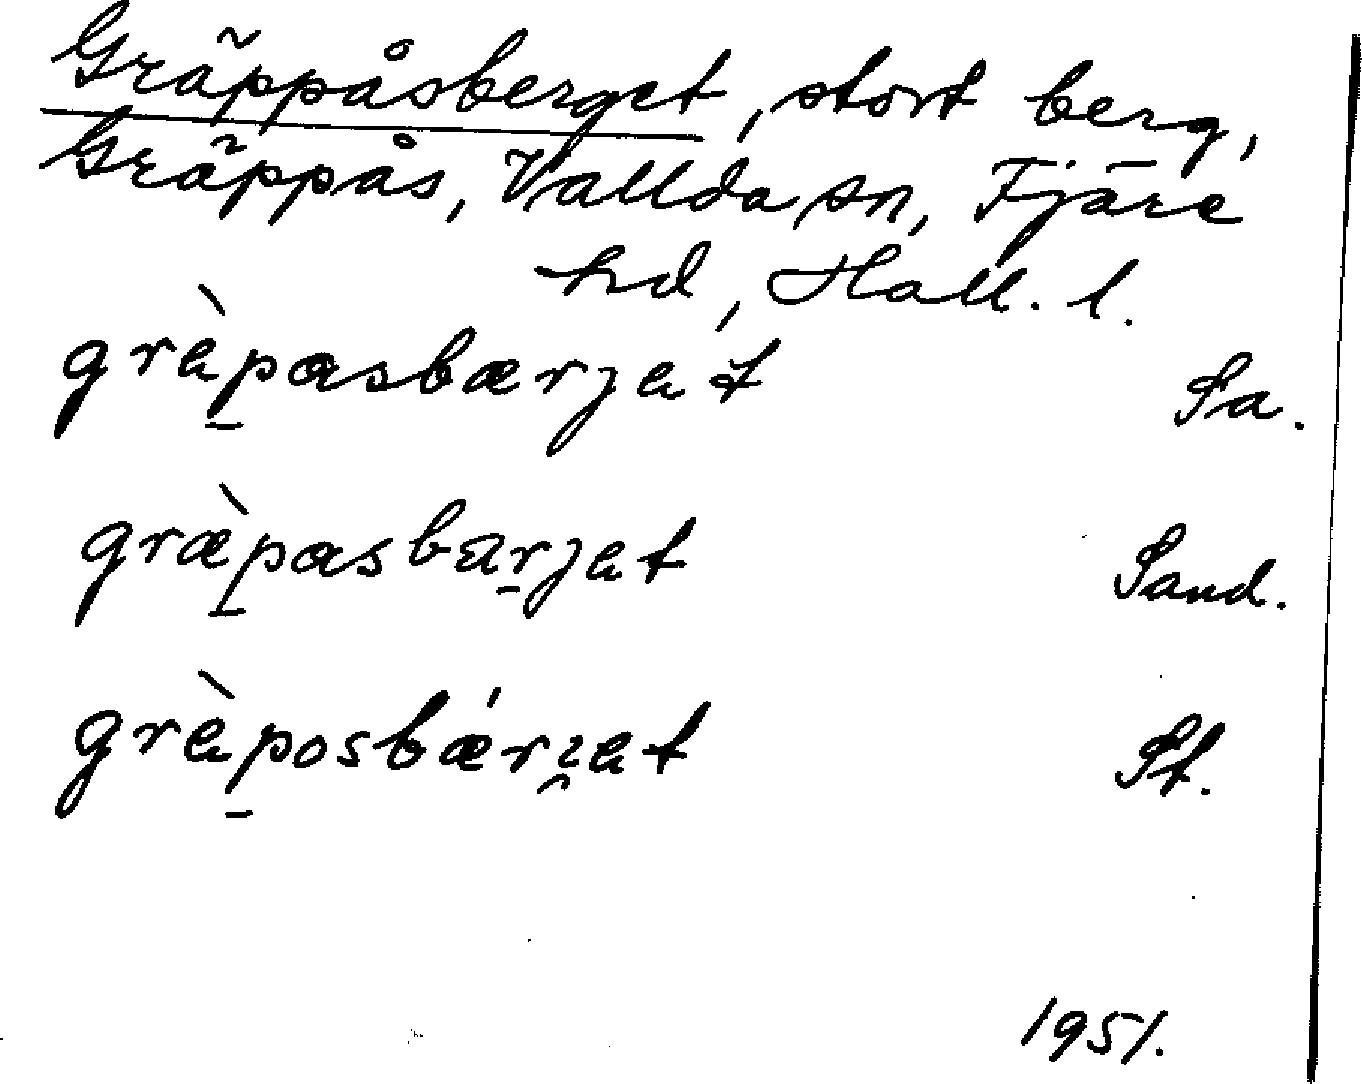 Gräppåsberget, stort berg,
Gräppås, Vallda sn, Fjäre
hd, Hall. l.
grèp̠asbærjet Sa.
græ̀p̠asbær̠jet Sand.
grèp̠osbǽri̯et St.
1951.